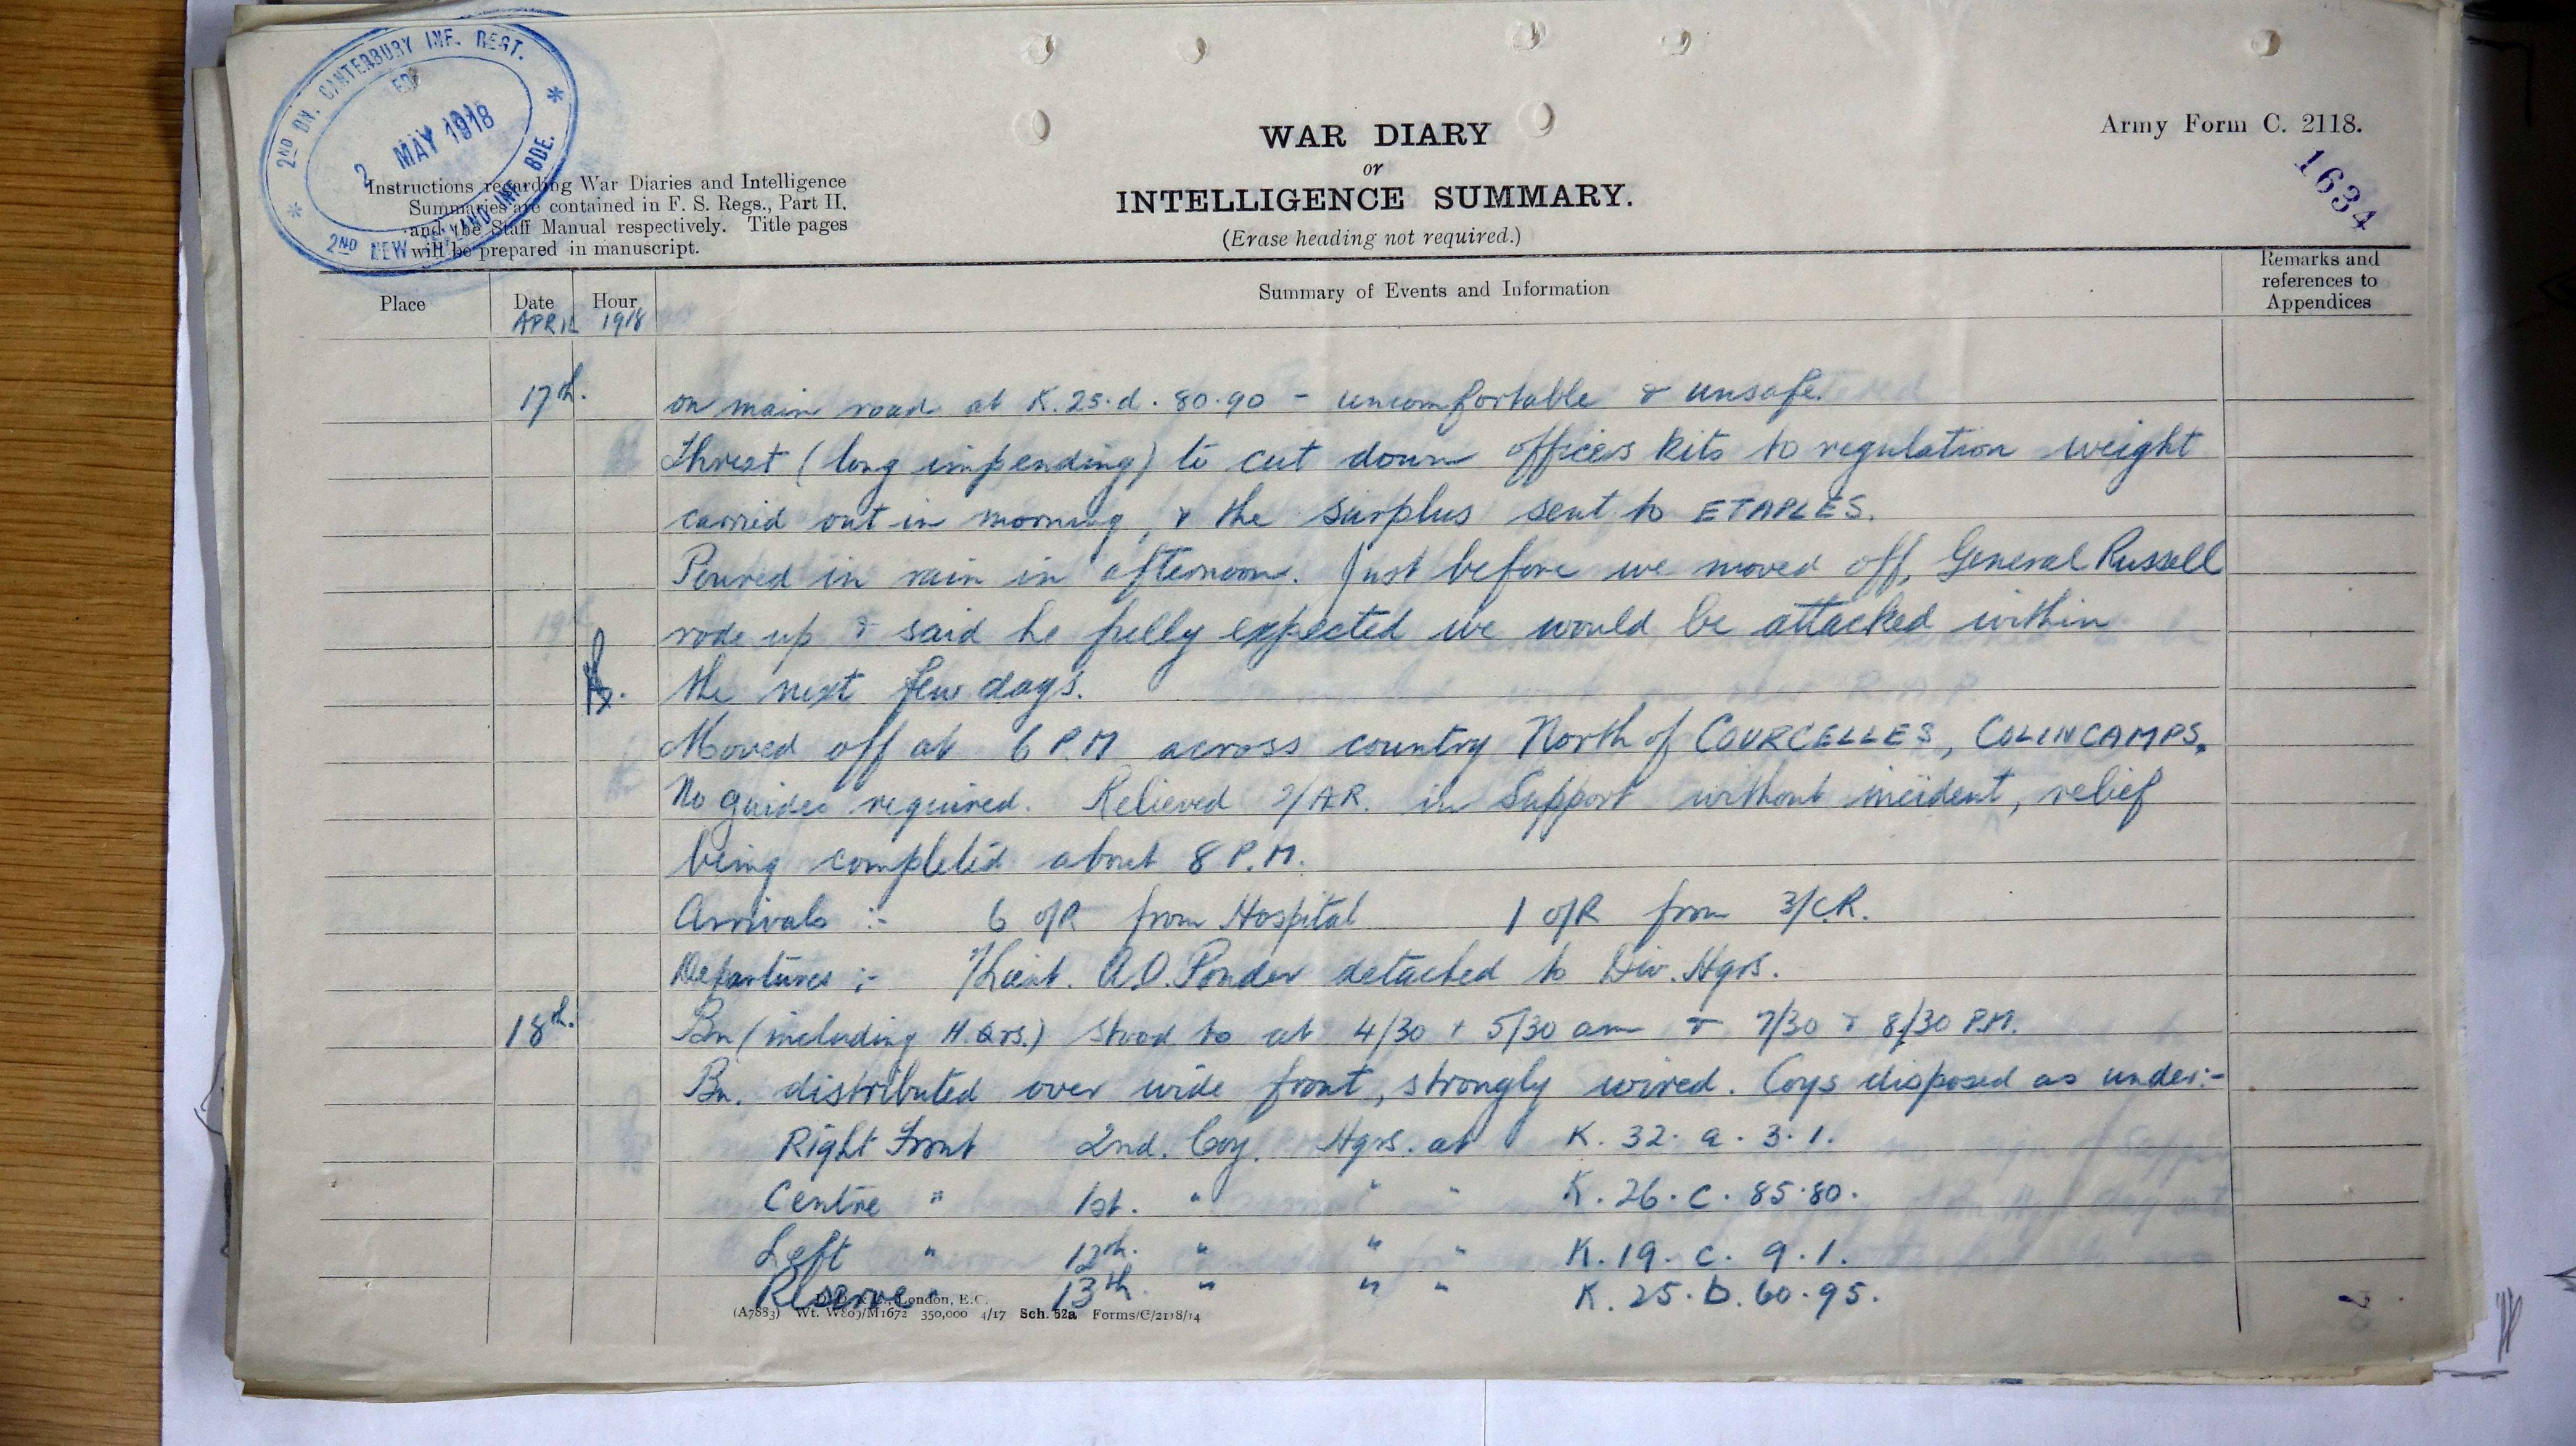 2ND BN. CANTERBURY INF. REGT.
2 MAY 1918
2ND NEW ZEALAND INF. BDE.
Army Form C. 2118.
1634
WAR DIARY
or
INTELLIGENCE SUMMARY.
(Erase heading not required.)
Instructions regarding War Diaries and Intelligence
Summaries are contained in F. S. Regs., Part II.
and the Staff Manual respectively. Title pages
will be prepared in manuscript.
Place Date Hour Summary of Events and Information Remarks and references to Appendices
APRIL 1918
17th. on main road at K.25.d.80.90 - uncomfortable & unsafe.
Threat (long impending) to cut down officers kits to regulation weight
carried out in morning, & the surplus sent to ETAPLES.
Poured in rain in afternoon. Just before we moved off, General Russell
rode up & said he fully expected we would be attacked within
the next few days.
Moved off at 6 P.M. across country North of COURCELLES, COLINCAMPS.
No guides required. Relieved 2/A.R. in Support without incident, relief
being completed about 8 P.M.
Arrivals :- 6 O/R from Hospital 1 O/R from 3/C.R.
Departures :- 2/Lieut. A.D. Ponder detached to Div. Hqrs.
18th. Bn (including H.Qrs.) stood to at 4/30 & 5/30 am & 7/30 & 8/30 P.M.
Bn. distributed over wide front, strongly wired. Coys disposed as under:-
Right Front 2nd. Coy. Hqrs. at K. 32. a. 3. 1.
Centre " 1st. " " " K. 26. c. 85.80.
Left " 12th. " " " K. 19. c. 9. 1.
Reserve " 13th. " " " K. 25. b. 60.95.
D. D. & L., London, E.C.
(A7883) Wt. W809/M1672 350,000 4/17 Sch. 52a Forms/C/2118/14